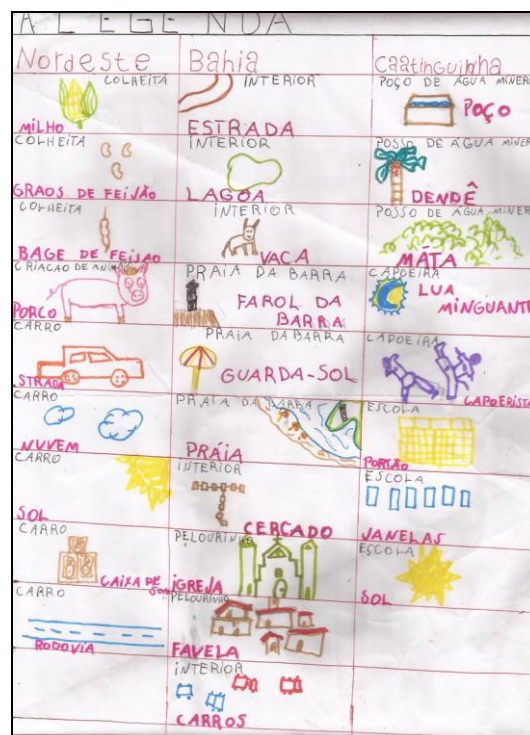 A LEGENDA
Nordeste
Bahia
Caatinguinha
COLHEITA
MILHO
INTERIOR
ESTRADA
POÇO DE ÁGUA MINER
POÇO
COLHEITA
GRAOS DE FEIJÃO
INTERIOR
LAGOA
POSSO DE ÁGUA MINER
DENDÊ
COLHEITA
BAGE DE FEIJAO
INTERIOR
VACA
POSSO DE ÁGUA MINER
MÁTA
CRIACAO DE ANIMA
PORCO
PRAIA DA BARRA
FAROL DA
BARRA
CAPOEIRA
LUA
MINGUANT
CARRO
STRADA
PRAIA DA BARRA
GUARDA-SOL
CAPOEIRA
CAPOERISTA
CARRO
NUVEM
PRAIA DA BARRA
PRÁIA
ESCOLA
PORTÃO
CARRO
SOL
INTERIOR
CERCADO
ESCOLA
JANELAS
CARRO
CAIXA DE SOM
PELOURINHO
IGREJA
ESCOLA
SOL
CARRO
RODOVIA
PELOURINHO
FAVELA
INTERIOR
CARROS